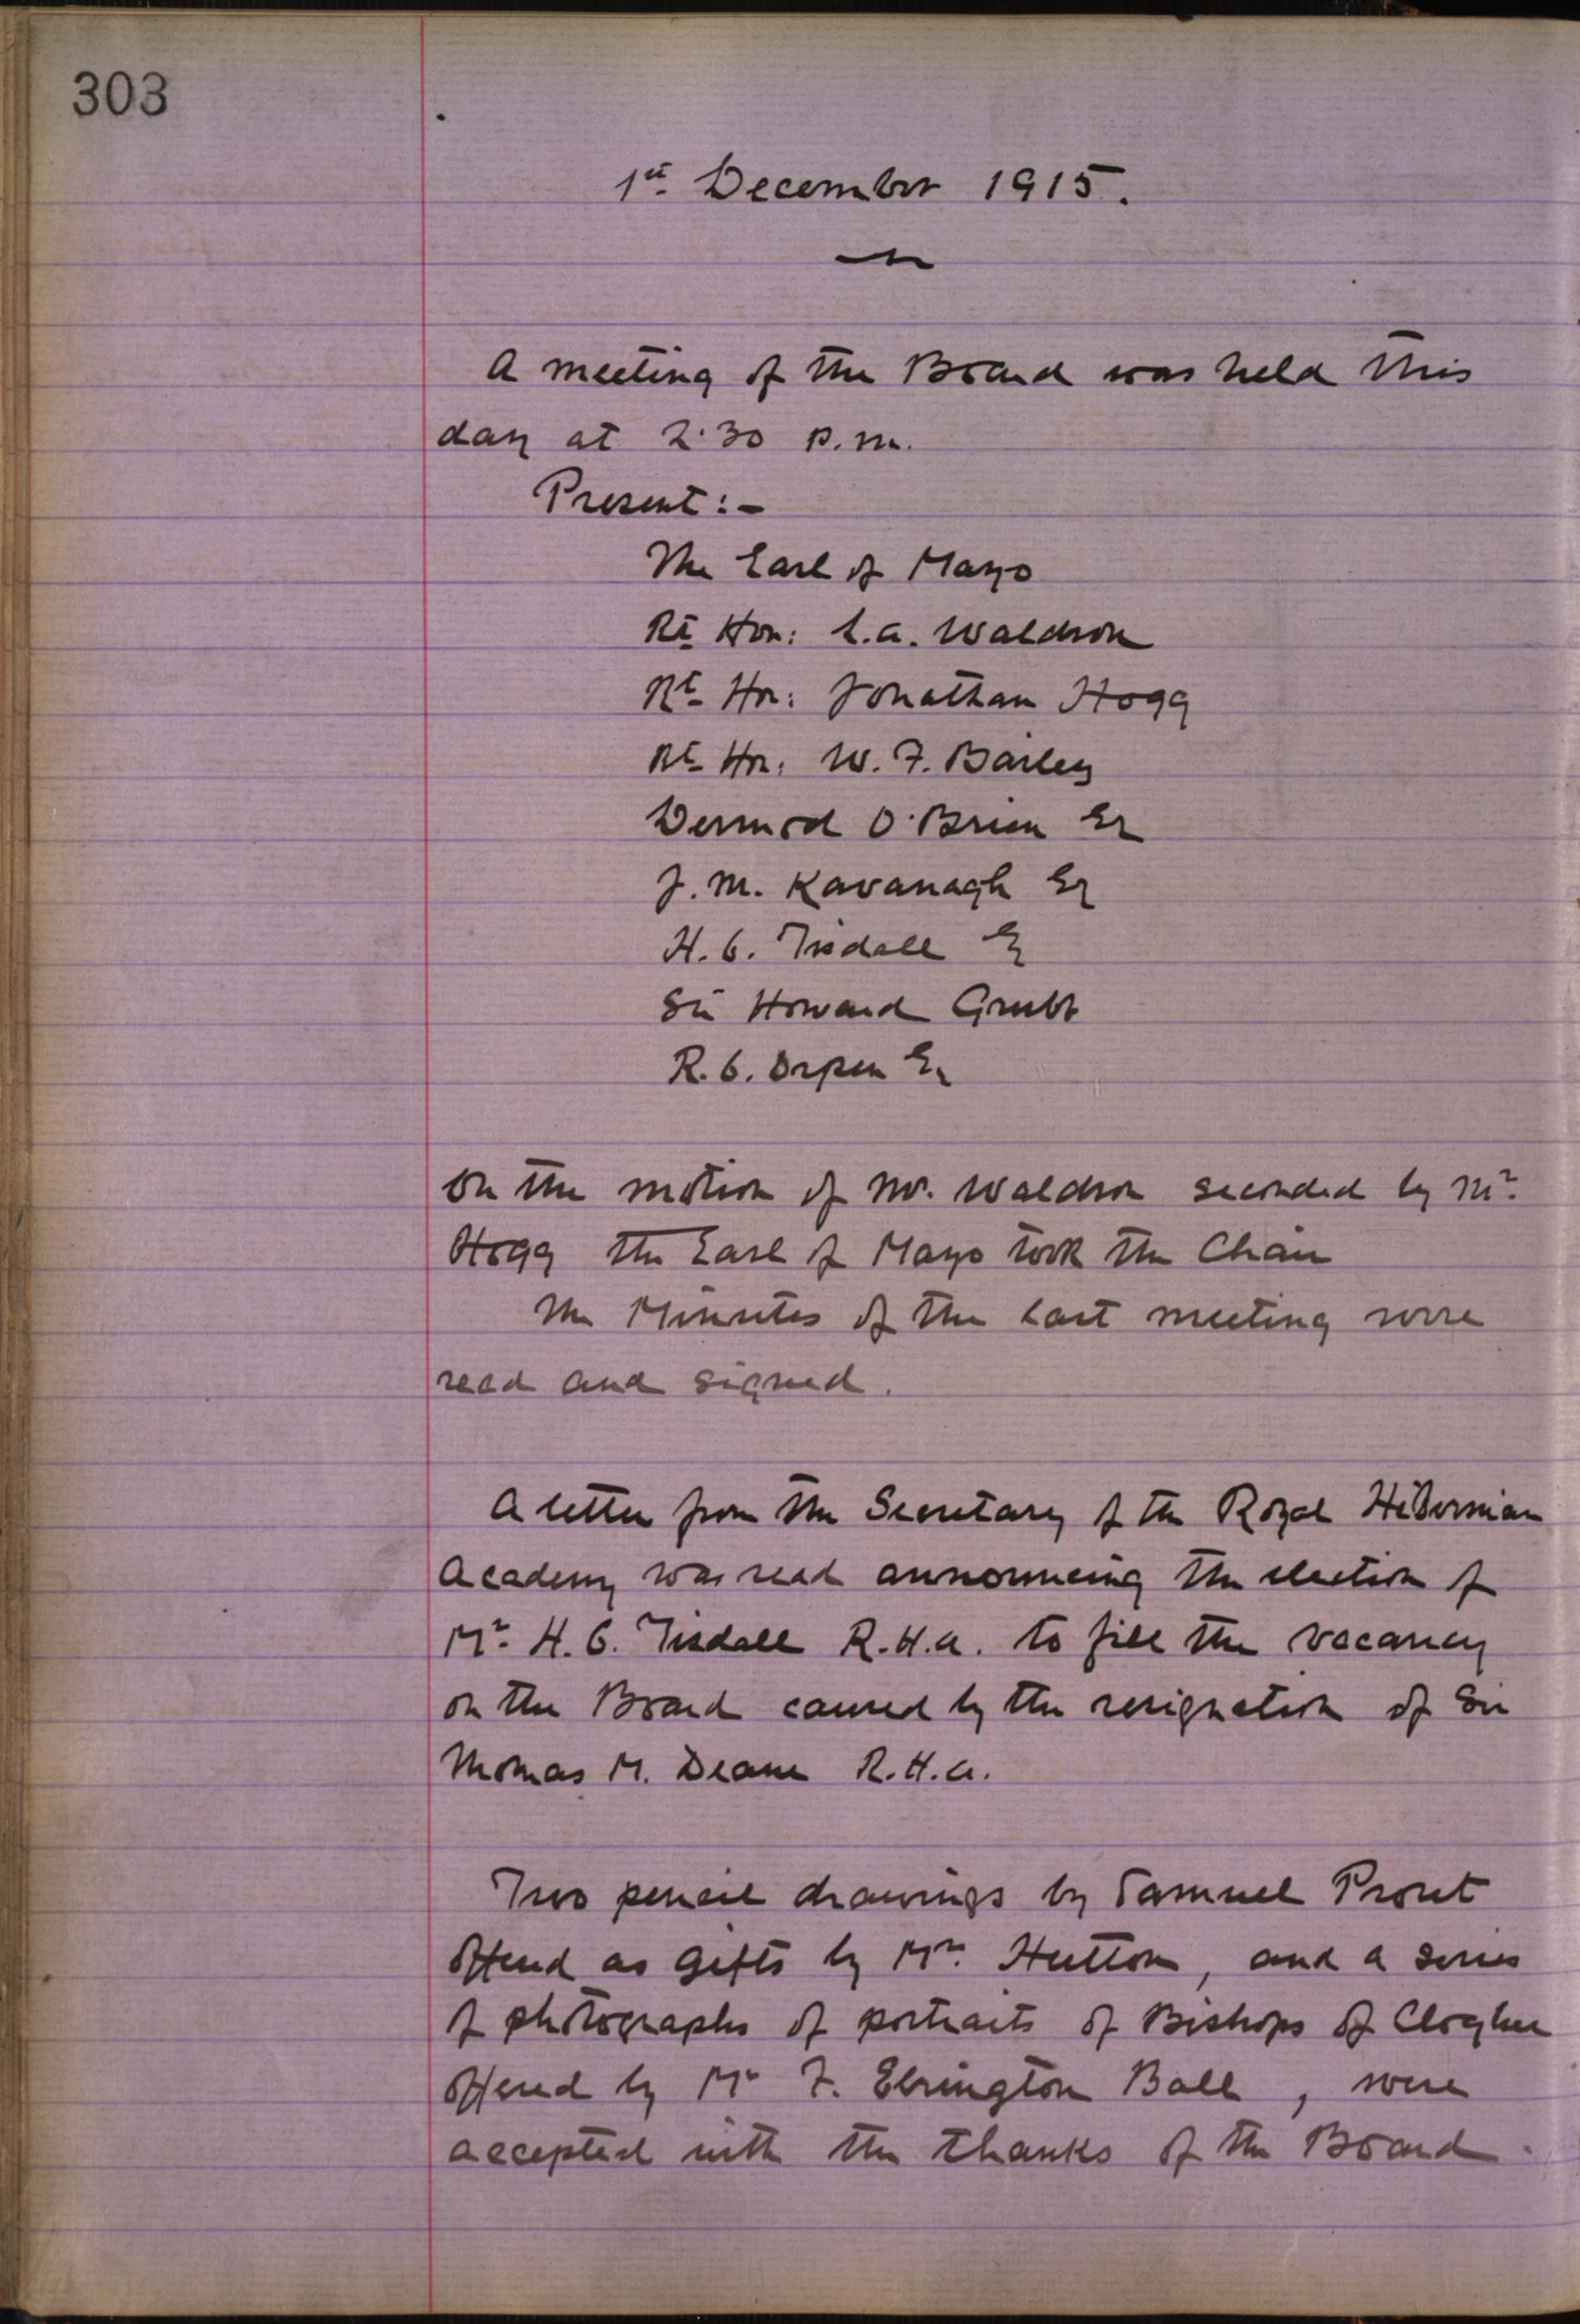 303
1st December 1915.
A meeting of the Board was held this
day at 2.30 p.m.
Present:-
The Earl of Mayo
Rt Hon: L.A. Waldron
Rt Hon: Jonathan Hogg
Rt Hon: W. F. Bailey
Dermod O'Brien Esq
J. M. Kavanagh Esq
H. C. Tisdall Esq
Sir Howard Grubb
R. C. Orpen Esq
On the motion of Mr. Waldron seconded by Mr.
Hogg the Earl of Mayo took the Chair
The Minutes of the last meeting were
read and signed.
A letter from the Secretary of the Royal Hibernian
Academy was read announcing the election of
Mr. H. C. Tisdall R.H.A. to fill the vacancy
on the Board caused by the resignation of Sir
Thomas M. Deane R.H.A.
Two pencil drawings by Samuel Prout
offered as gifts by Mr. Hutton, and a series
of photographs of portraits of Bishops of Clogher
offered by Mr F. Elrington Ball, were
accepted with the thanks of the Board.